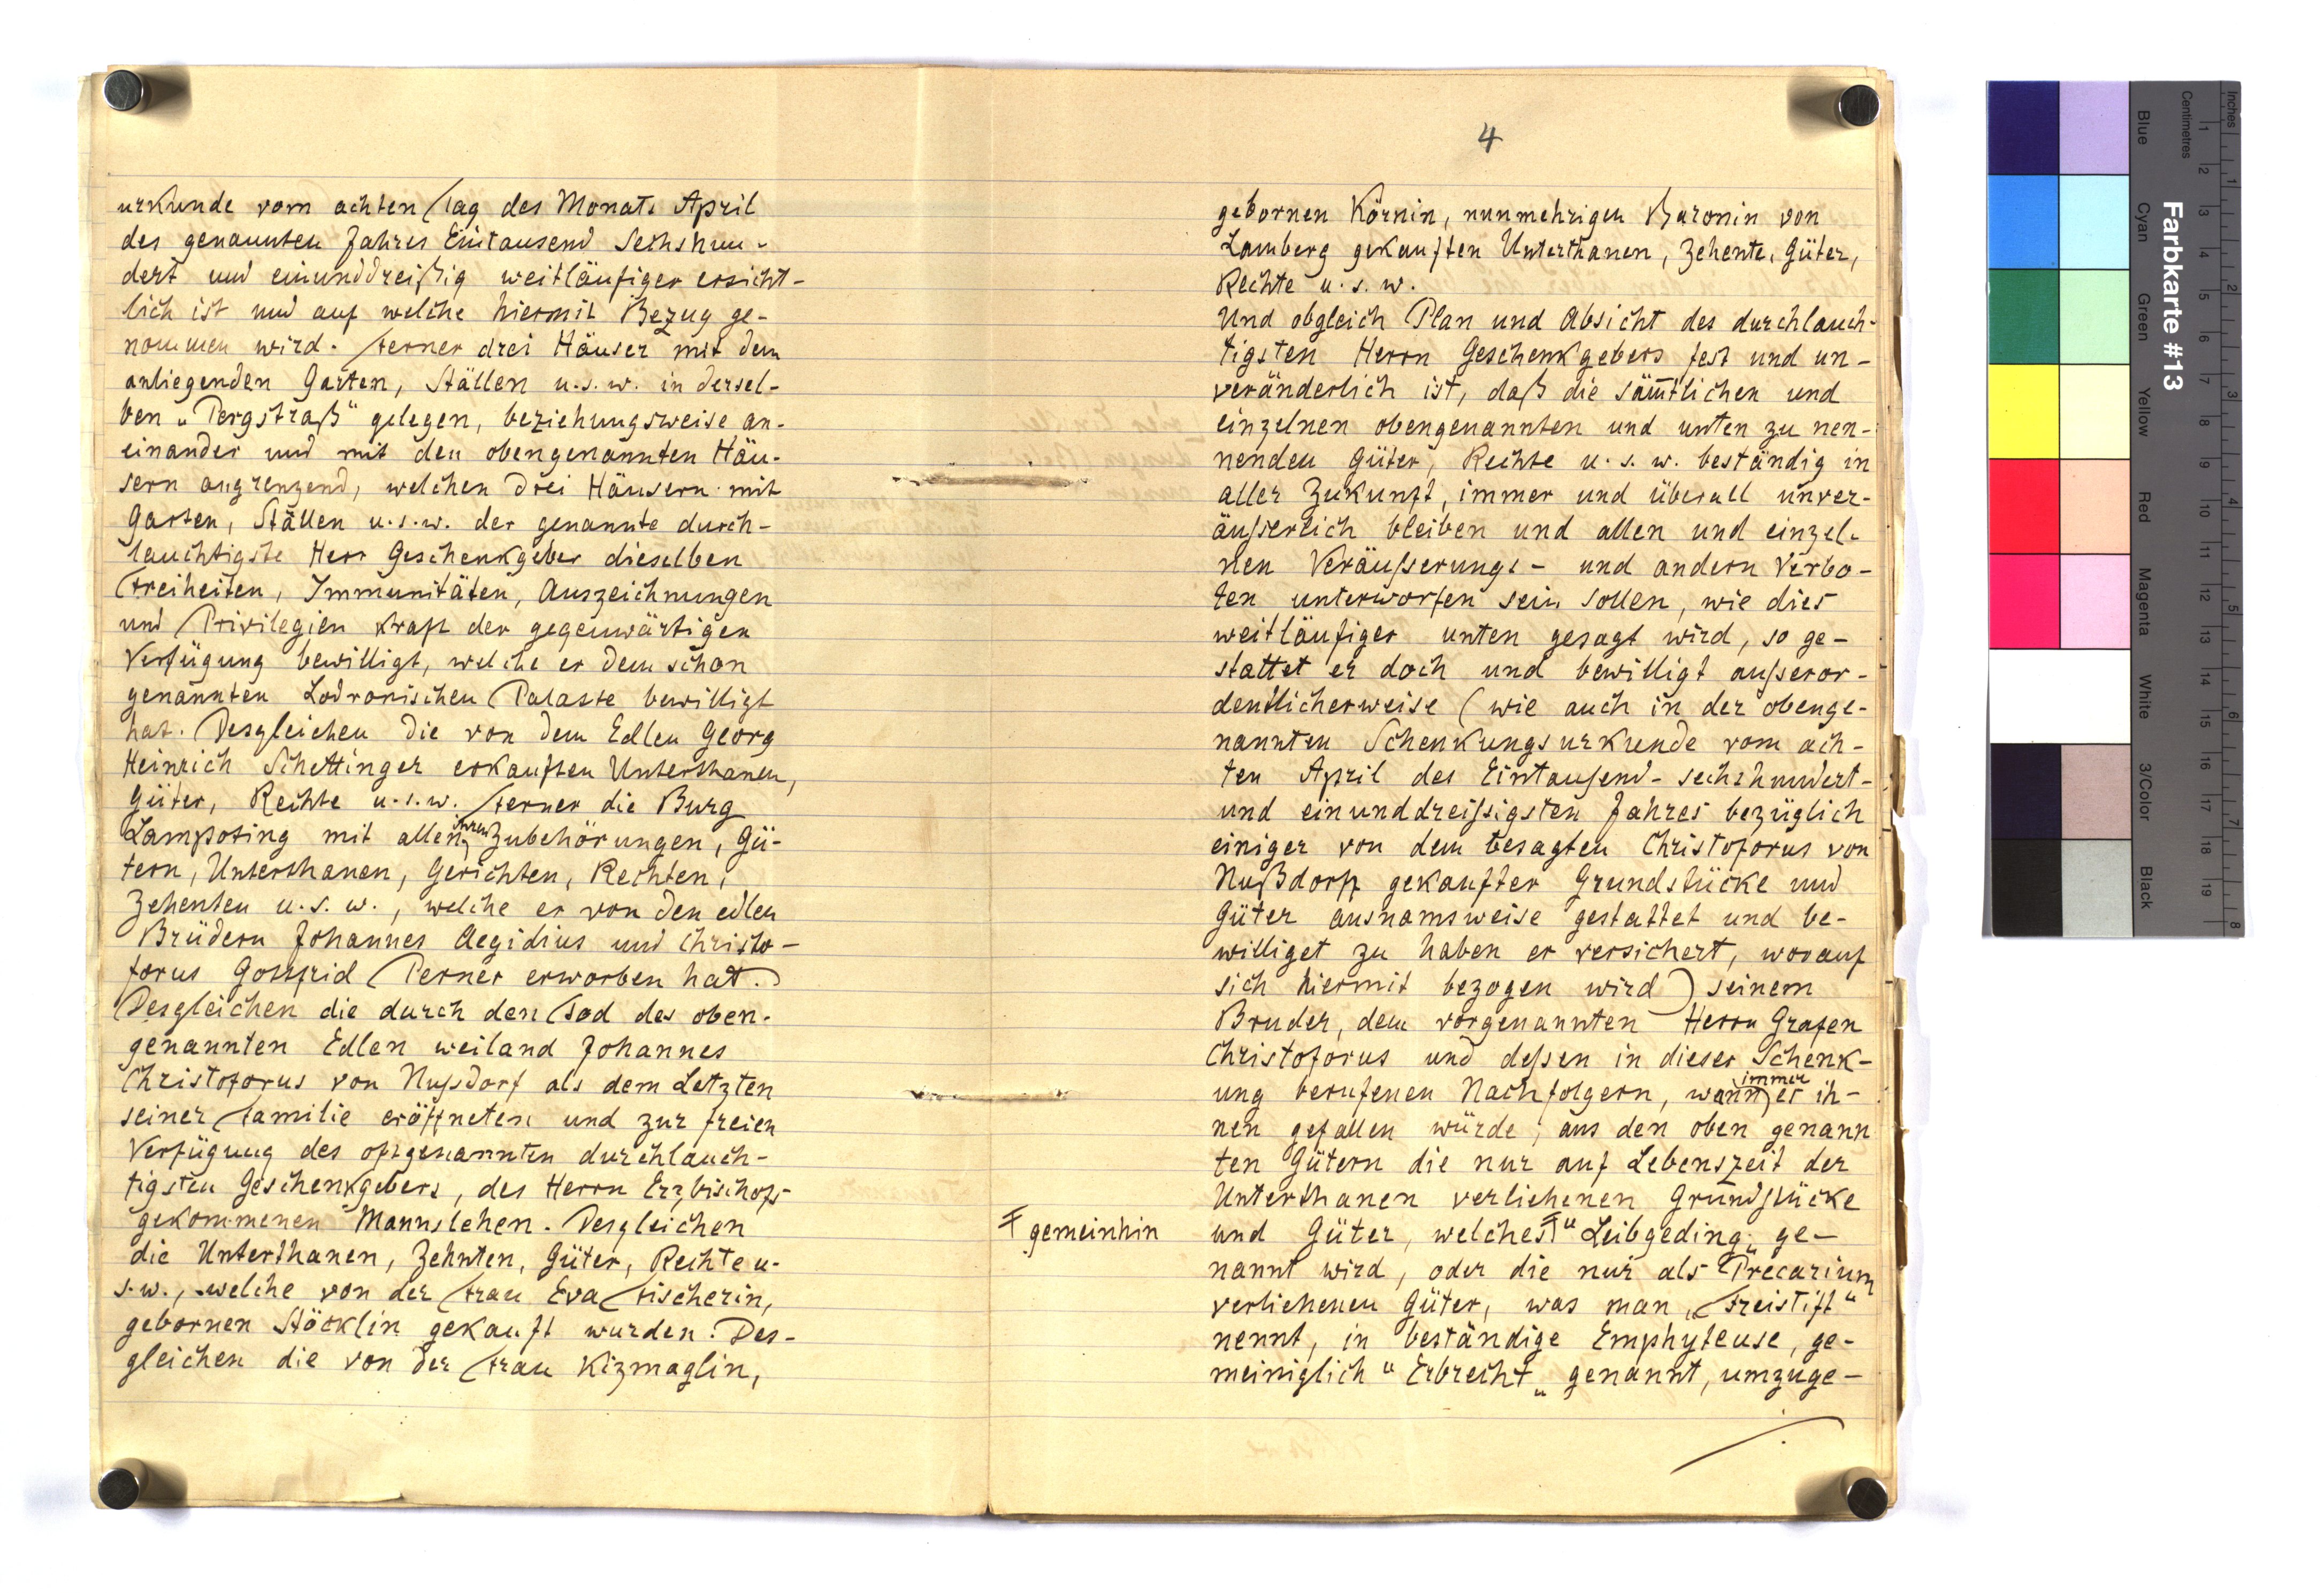 urkunde vom achten Tag des Monats April
des genannten Jahres Eintausend Sechshun-
dert und einunddreißig weitläufiger ersicht-
lich ist und auf welche hiermit Bezug ge-
nommen wird. Ferner drei Häuser mit dem
anliegenden Garten, Ställen u.s.w. in dersel-
ben „Pergstraß" gelegen, beziehungsweise an-
einander und mit den obengenannten Häu-
sern angrenzend, welchen drei Häusern mit
Garten, Ställen u.s.w. der genannte durch-
lauchtigste Herr Geschenkgeber dieselben
Freiheiten, Immunitäten, Auszeichnungen
und Privilegien kraft der gegenwärtigen
Verfügung bewilligt, welche er dem schon
genannten Lodronischen Palaste bewilligt
hat. Desgleichen die von dem Edlen Georg
Heinrich Schettinger erkauften Unterthanen,
Güter, Rechte u.s.w. Ferner die Burg
Lampoting mit allen ihren Zubehörungen, Gü-
tern, Unterthanen, Gerichten, Rechten,
Zehenten u.s.w., welche er von den edlen
Brüdern Johannes Aegidius und Christo-
forus Gottfrid Perner erworben hat.
Desgleichen die durch den Tod des oben-
genannten Edlen weiland Johannes
Christoforus von Nußdorf als dem Letzten
seiner Familie eröffneten und zur freien
Verfügung des oftgenannten durchlauch-
tigsten Geschenkgebers, des Herrn Erzbischofs
gekommenen Mannslehen. Desgleichen
die Unterthanen, Zehnten, Güter, Rechte u.
s.w., welche von der Frau Eva Fischerin,
gebornen Stöcklin gekauft wurden. Des-
gleichen die von der Frau Kizmaglin,
4
gebornen Körnin, nunmehrigen Baronin von
Lamberg gekauften Unterthanen, Zehente, Güter,
Rechte u.s.w.
Und obgleich Plan und Absicht des durchlauch-
tigsten Herrn Geschenkgebers fest und un-
veränderlich ist, daß die säm̅tlichen und
einzelnen obengenannten und unten zu nen-
nenden Güter, Rechte u.s.w. beständig in
aller Zukunft, immer und überall unver-
äußerlich bleiben und allen und einzel-
nen Veräußerungs- und andern Verbo-
ten unterworfen sein sollen, wie dies
weitläufiger unten gesagt wird, so ge-
stattet er doch und bewilligt außeror-
dentlicherweise (wie auch in der obenge-
nannten Schenkungsurkunde vom ach-
ten April des Eintausend-sechshundert-
und einunddreißigsten Jahres bezüglich
einiger von dem besagten Christoforus von
Nußdorff gekaufter Grundstücke und
Güter ausnamsweise gestattet und be-
williget zu haben er versichert, worauf
sich hiermit bezogen wird) seinem
Bruder, dem vorgenannten Herrn Grafen
Christoforus und deßen in dieser Schenk-
ung berufenen Nachfolgern, wann immer er ih-
nen gefallen würde, aus den oben genann
ten Gütern die nur auf Lebenszeit der
Unterthanen verliehenen Grundstücke
und Güter, welches "Leibgeding„ ge-
Ŧ gemeinhin
nannt wird, oder die nur als Precarium
verliehenen Güter, was man „Freistift"
nennt, in beständige Emphyteuse, ge-
meiniglich "Erbrecht„ genannt, umzuge-
Farbkarte #13
Inches
Centimetres
1 2 3 4 5 6 7 8 9 10 11 12 13 14 15 16 17 18 19
1 2 3 4 5 6 7 8
Blue
Cyan
Green
Yellow
Red
Magenta
White
3/Color
Black